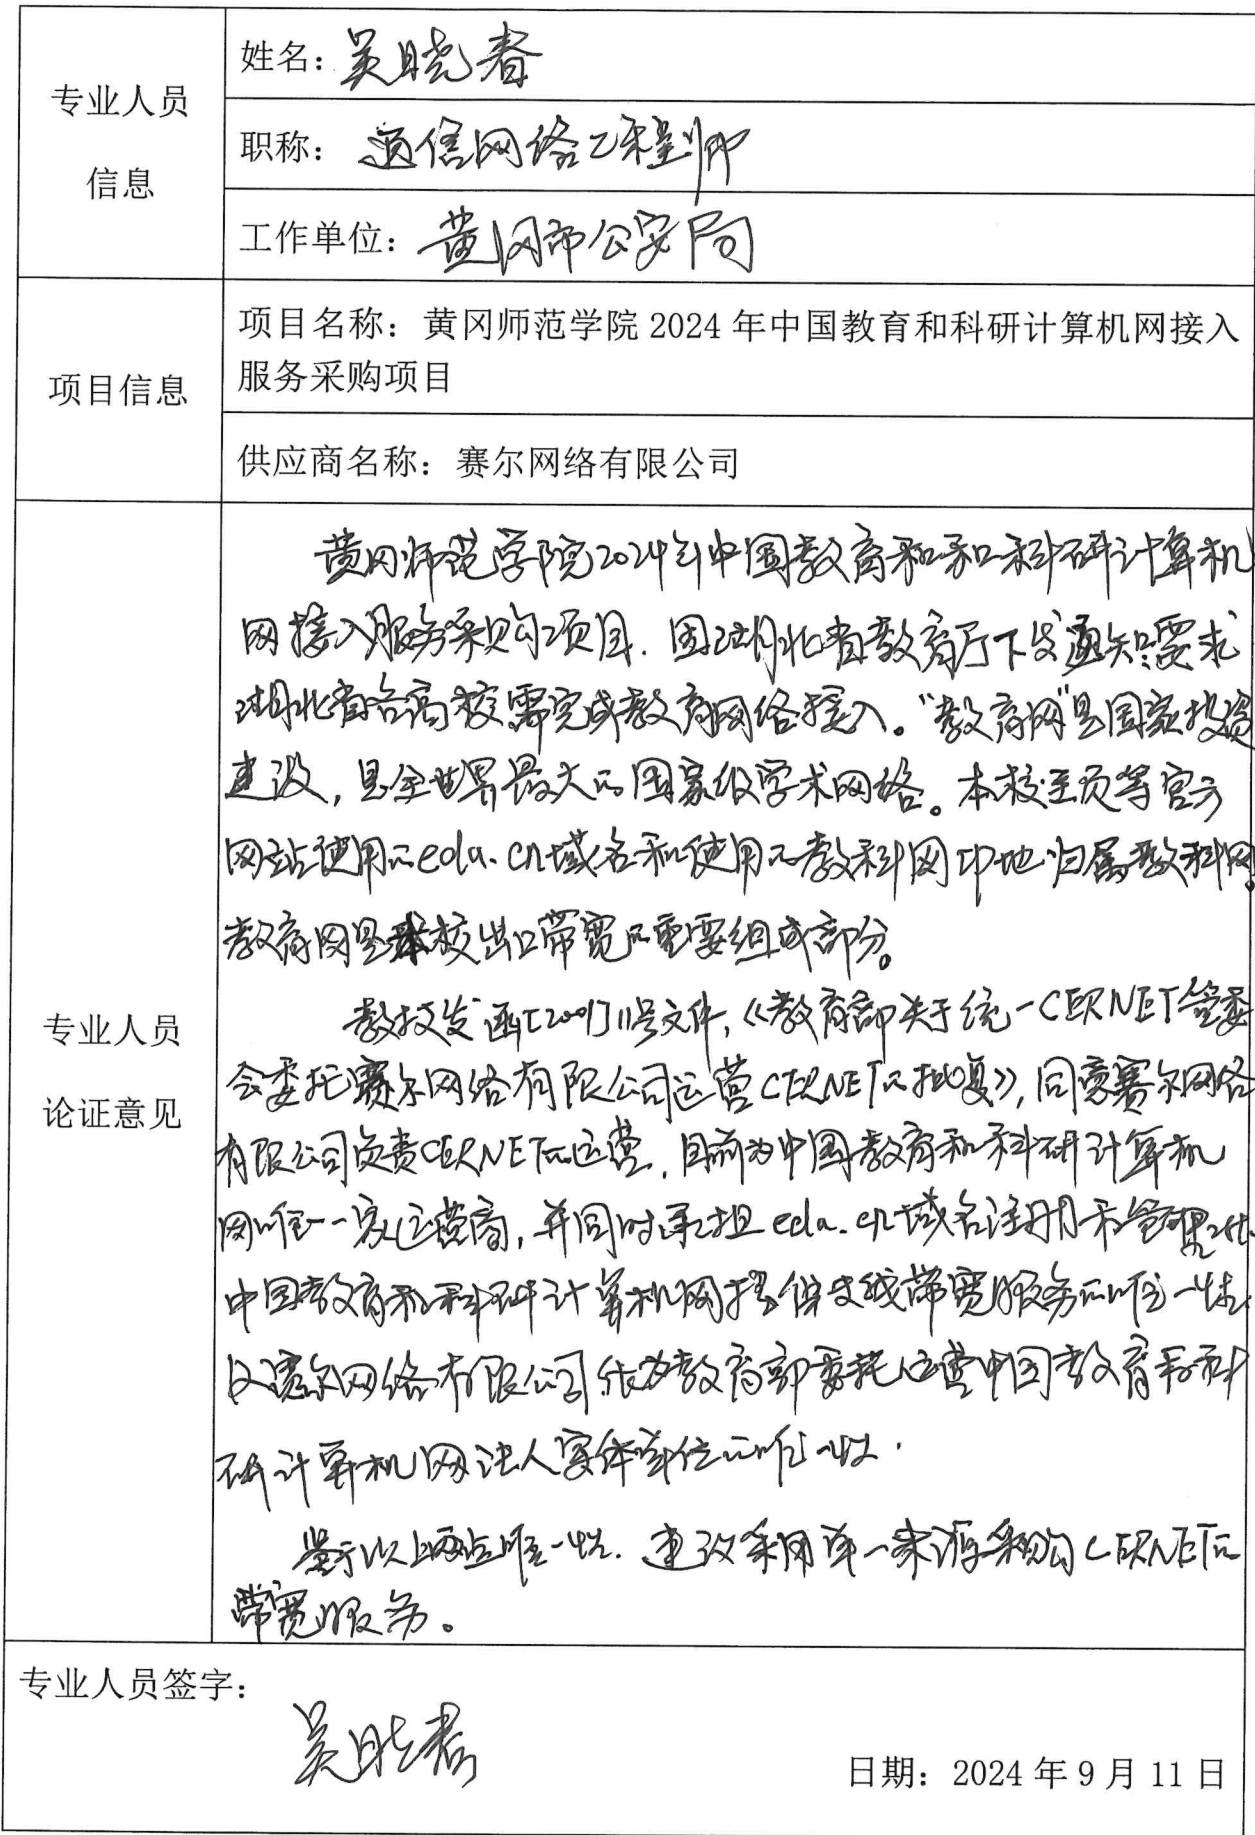 专业人员
信息
姓名：吴晓春
职称：通信网络工程师
工作单位：黄冈市公安局
项目信息
项目名称：黄冈师范学院 2024 年中国教育和科研计算机网接入
服务采购项目
供应商名称：赛尔网络有限公司
专业人员
论证意见
黄冈师范学院2024年中国教育和和科研计算机
网接入服务采购项目.因湖北省教育厅下发通知要求
湖北省各高校需完成教育网络接入。"教育网"是国家投资
建设,是全世界最大的国家级学术网络。本校主页等官方
网站使用的edu.cn域名和使用的教科网IP地归属教科网.
教育网是本校出口带宽的重要组成部分。
教技发函[2001]1号文件,《教育部关于统一CERNET管委
会委托赛尔网络有限公司运营CERNET的批复》,同意赛尔网络
有限公司负责CERNET的运营,目前为中国教育和科研计算机
网唯一一家运营商,并同时承担edu.cn域名注册和管理工作.
中国教育和科研计算机网提供支线带宽服务的唯一性.
又赛尔网络有限公司作为教育部委托运营中国教育和科
研计算机网法人实体单位的唯一性.
鉴于以上两点唯一性.建议采用单一来源采购CERNET的
带宽服务。
专业人员签字：
吴晓春
日期：2024 年 9 月 11 日